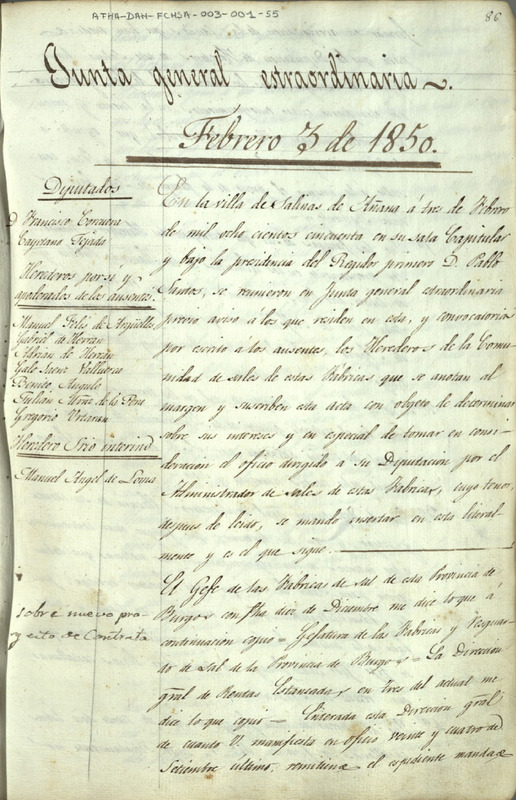 ATHA-DAH-FCHSA-003-001-55
86
Junta general estraordinaria
Febrero 3 de 1850.
Diputados
D. Francisco
Cayetano Tejada
Herederos por sí y
apoderados de los ausentes.
Manuel Felis de Arguelles
Gabriel de Herran
Adrian de Herran
Galo Saenz Valluerca
Benito Angulo
Julian de la Peña
Gregorio
Heredero Srio interino
Manuel Angel de Loma
En la villa de Salinas de Añana á tres de Febrero
de mil ocho cientos cincuenta en su sala Capitular
y bajo la presidencia del Regidor primero D. Pablo
Santos, se reunieron en Junta general estraordinaria
previo aviso á los que residen en esta, y convocatoria
por escrito á los ausentes, los Herederos de la Comu-
nidad de sales de estas Fabricas que se anotan al
margen y suscriben esta acta con objeto de determinar
sobre sus intereses y en especial de tomar en consi-
deración el oficio dirigido á su Diputacion por el
Administrador de Sales de estas Fabricas, cuyo tenor,
despues de leido, se mandó insertar en esta literal-
mente y es el que sigue.
sobre nuevo pro-
yecto de Contrata
El Gefe de las Fabricas de sal de esta Provincia de
Burgos con fha diez de Diciembre me dice lo que á
continuacion copio = Gefatura de las Fabricas y Resguar-
do de Sal de la Provincia de Burgos = La Direccion
gral de Rentas Estancadas en tres del actual me
dice lo que copio = Enterada esta Direccion gral
de cuanto V. manifiesta en oficio veinte y cuatro de
Setiembre último, el espediente